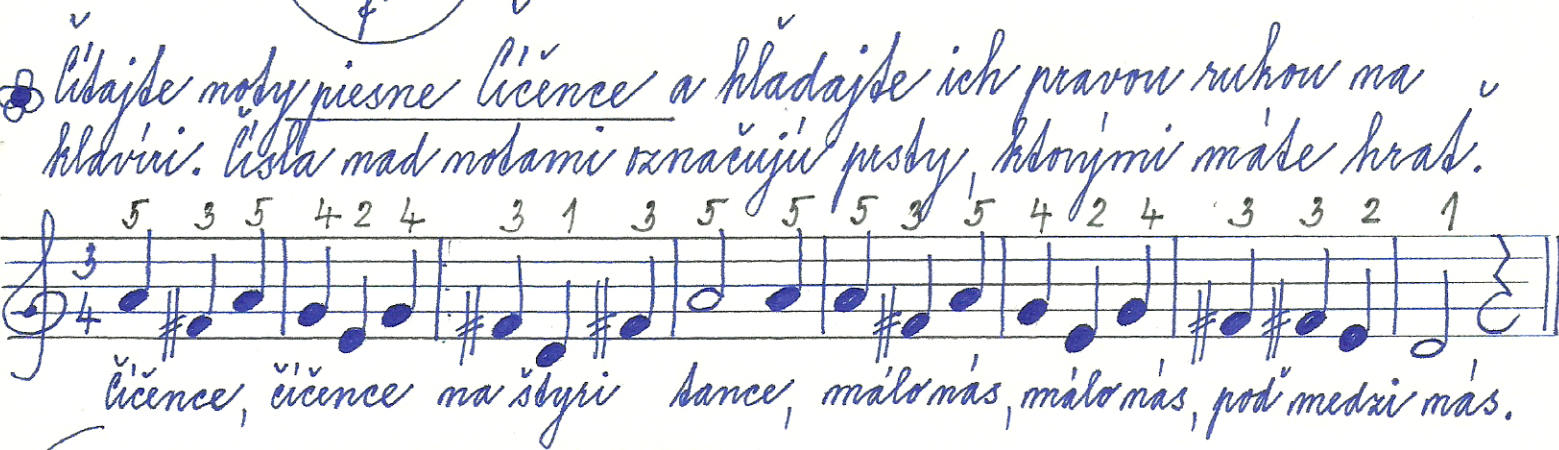 f
Čítajte noty piesne Číčence a hľadajte ich pravou rukou na
klavíri. Čísla nad notami označujú prsty, ktorými máte hrať.
5 3 5 4 2 4 3 1 3 5 5 5 3 5 4 2 4 3 3 2 1
3
4
Číčence, číčence na štyri tance, málo nás, málo nás, poď medzi nás.